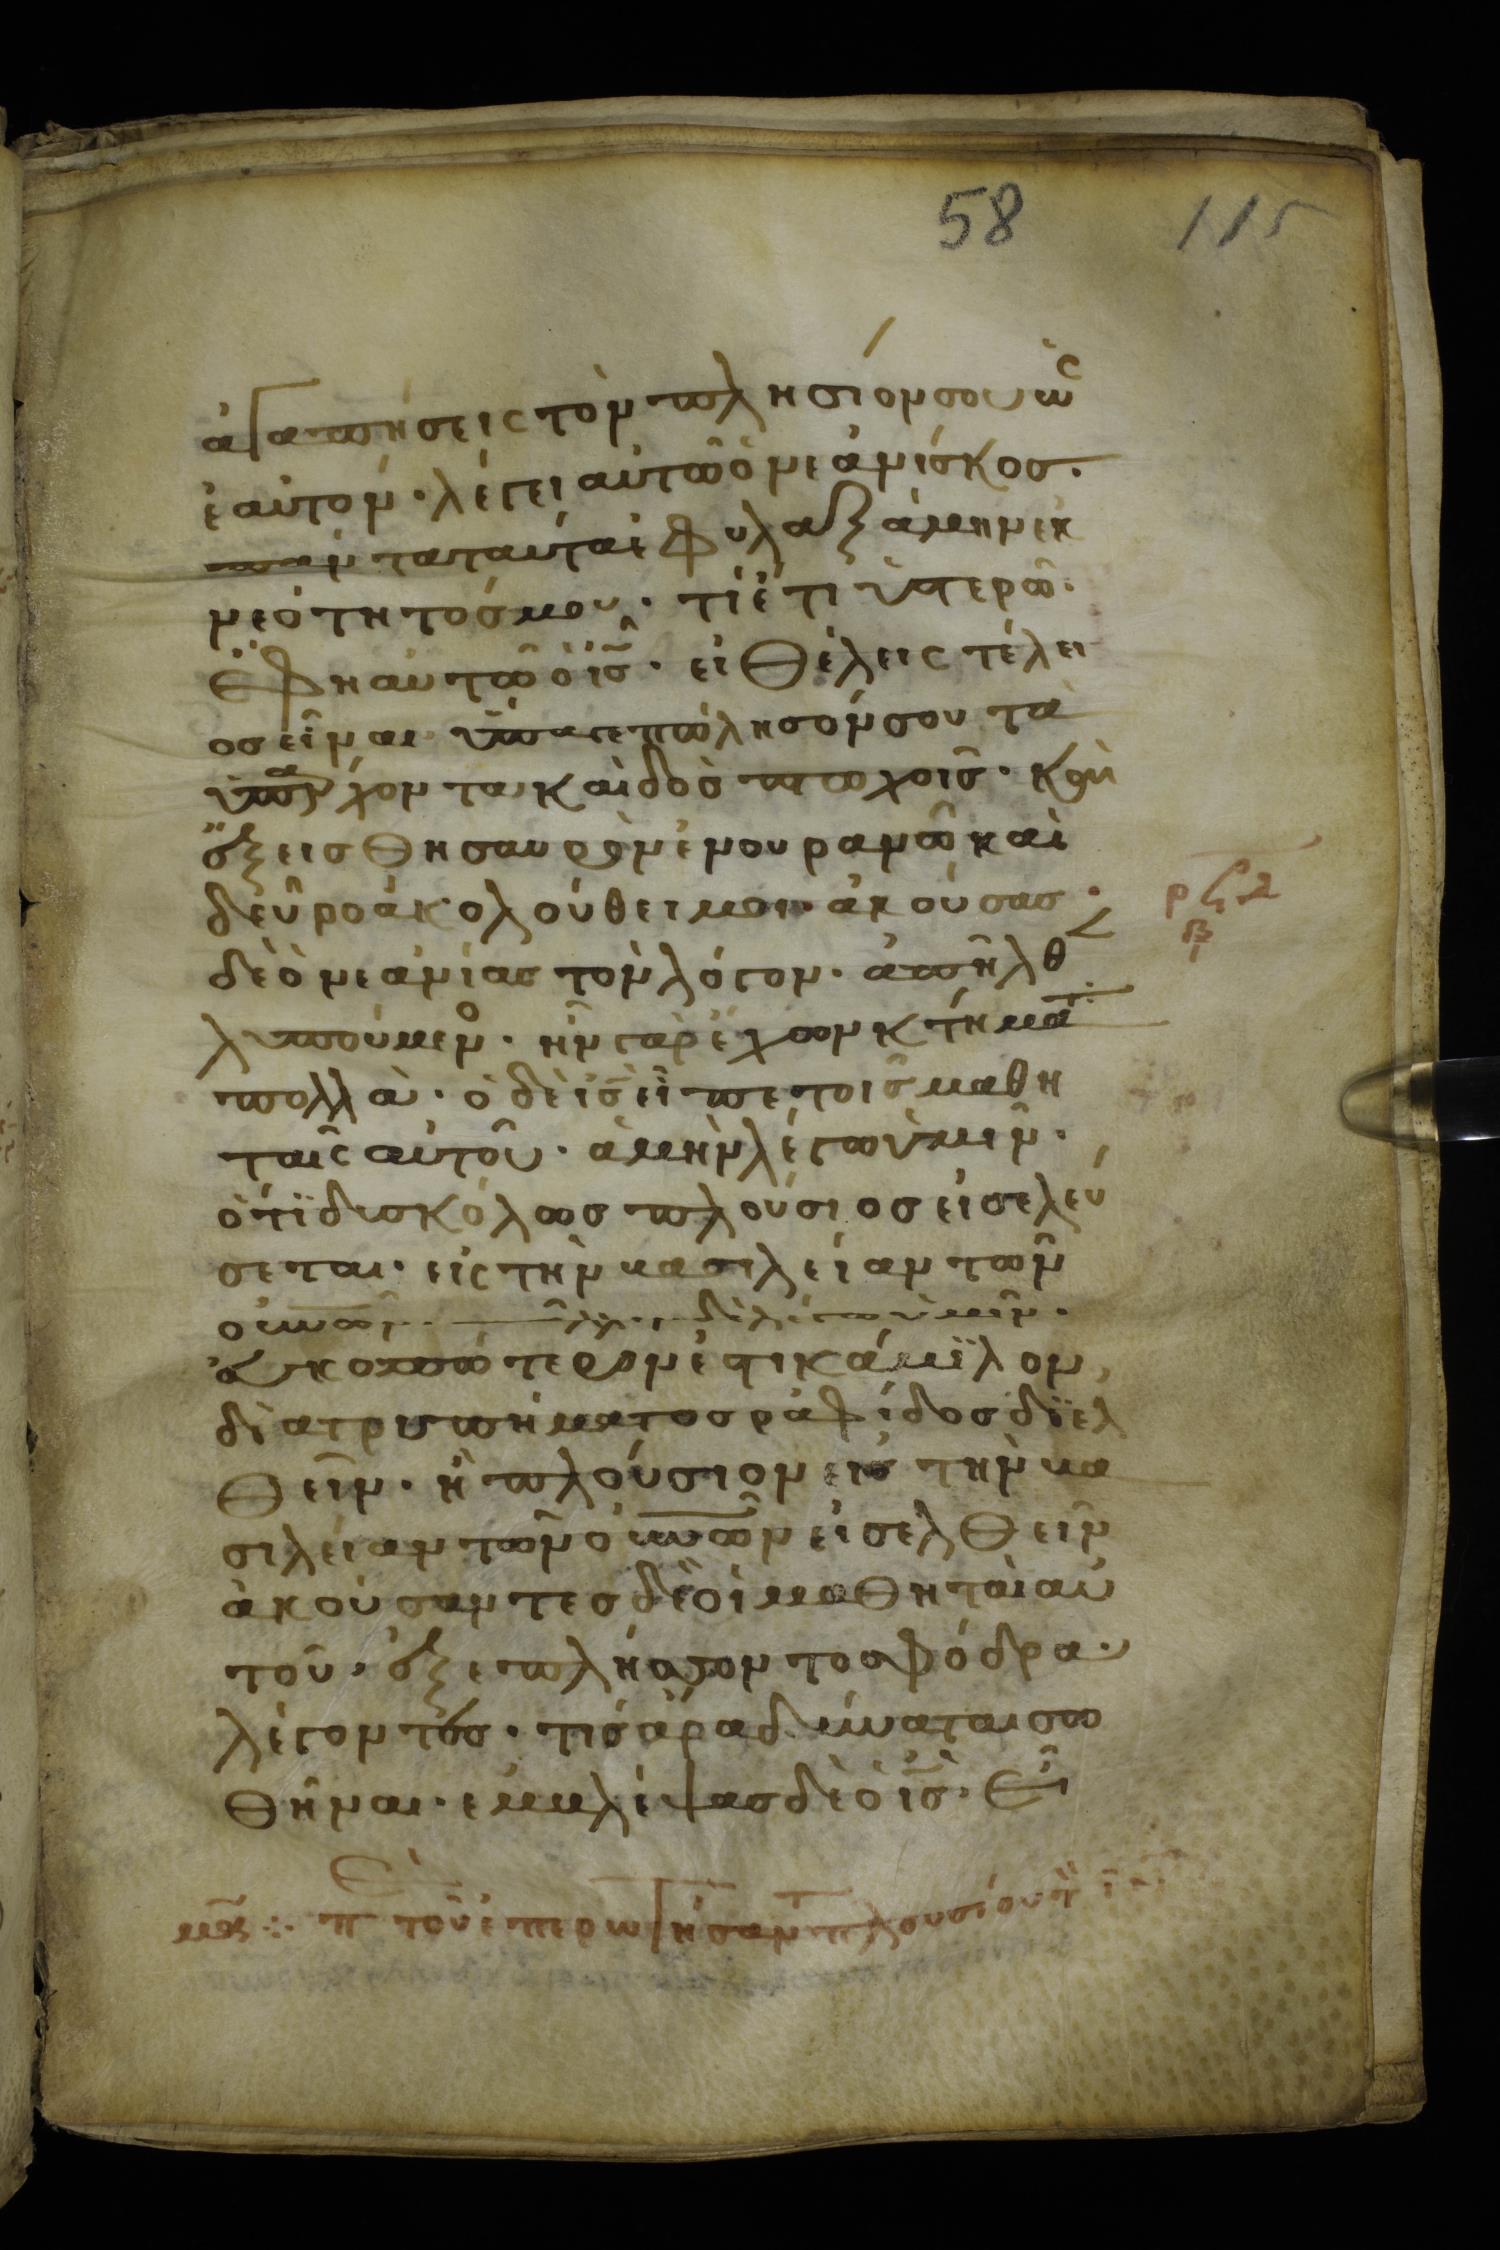 58 115
ἀγαπήσεις τὸν πλησίον σου ὡς
ἑαυτόν· λέγει αὐτῶ ὁ νεανίσκος·
πάντα ταῦτα ἐφυλαξάμην ἐκ
νεότητός μου· τί ἔτι ὑστερῶ·
ἔφη αὐτῶ ὁ ις· εἰ θέλεις τέλει
ος εἶναι ὕπαγε πώλησόν σου τὰ
ὑπάρχοντα καὶ δὸς πτωχοῖς· καὶ
ἕξεις θησαυρὸν ἐν ουρανῶ καὶ
δεῦρο ἀκολούθει μοι· ἀκούσας
δὲ ὁ νεανίας τὸν λόγον· ἀπῆλθ
λυπούμενο· ἦν γὰρ ἔχων κτήματ
πολλά· ὁ δὲ ις εἶπε τοῖς μαθη
ταῖς αὐτοῦ· ἀμὴν λέγω ὑμῖν·
ὅτι δυσκόλως πλούσιος εἰσελεύ
σεται· εἰς τὴν βασιλείαν τῶν
ουνων· πάλιν δὲ λέγω ὑμῖν·
εὐκοπώτερόν ἐστι κάμιλον,
διὰ τρυπήματος ραφίδος διελ
θεῖν· ἢ πλούσιον εἰς τὴν βα
σιλείαν τῶν ουνων εἰσελθεῖν
ἀκούσαντες δὲ οἱ μαθηταὶ αὐ
τοῦ· ἐξεπλήσσοντο σφόδρα·
λέγοντες· τίς ἄρα δύναται σω
θῆναι· ἐμβλέψας δὲ ὁ ις· εἶ
ρϟδ
β
π τοῦ ἐπερωτήσαντ πλουσίου τ